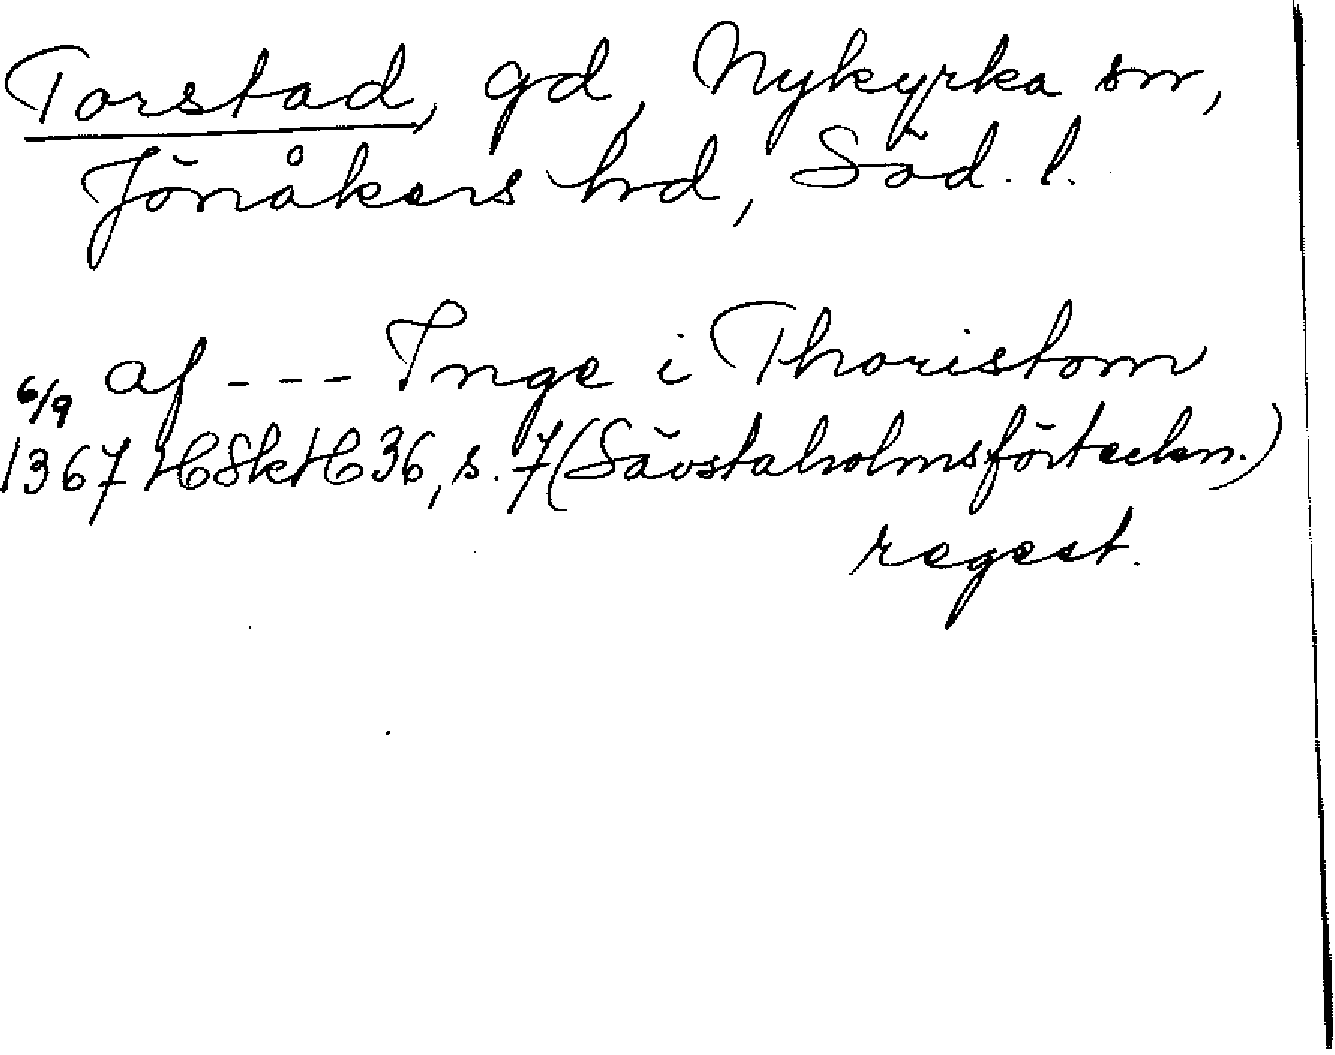 Torstad, gd, Nykyrka sn,
Jönåkers hrd, Söd. l.
af --- Inge i Thoristom
6/9 1367 HSkH 36, s. 7 (Sävstaholmsförteckn.)
regest.